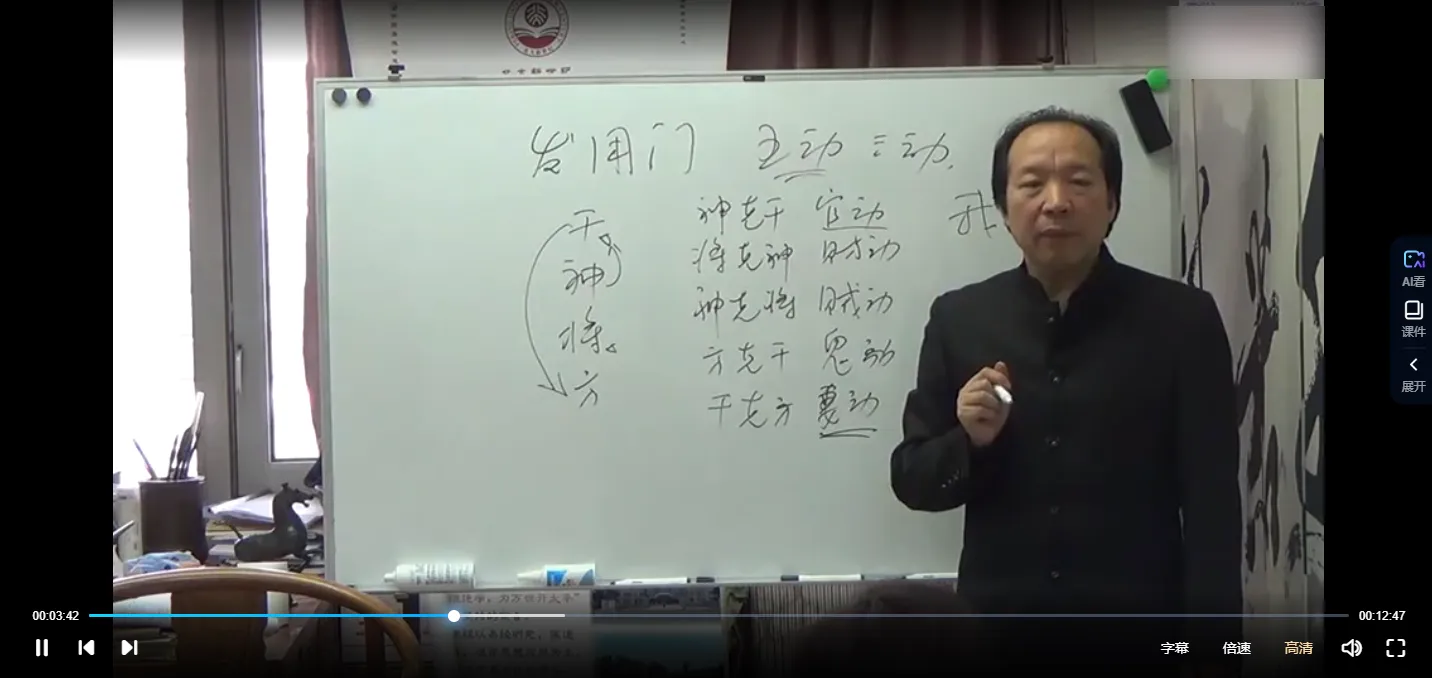 发用门 主动 三动
干 神克干 官动 我
神 将克神 财动
将 神克将 贼动
方 方克干 鬼动
干克方 妻动
AI看
课件
展开
00:03:42
00:12:47
字幕 倍速 高清